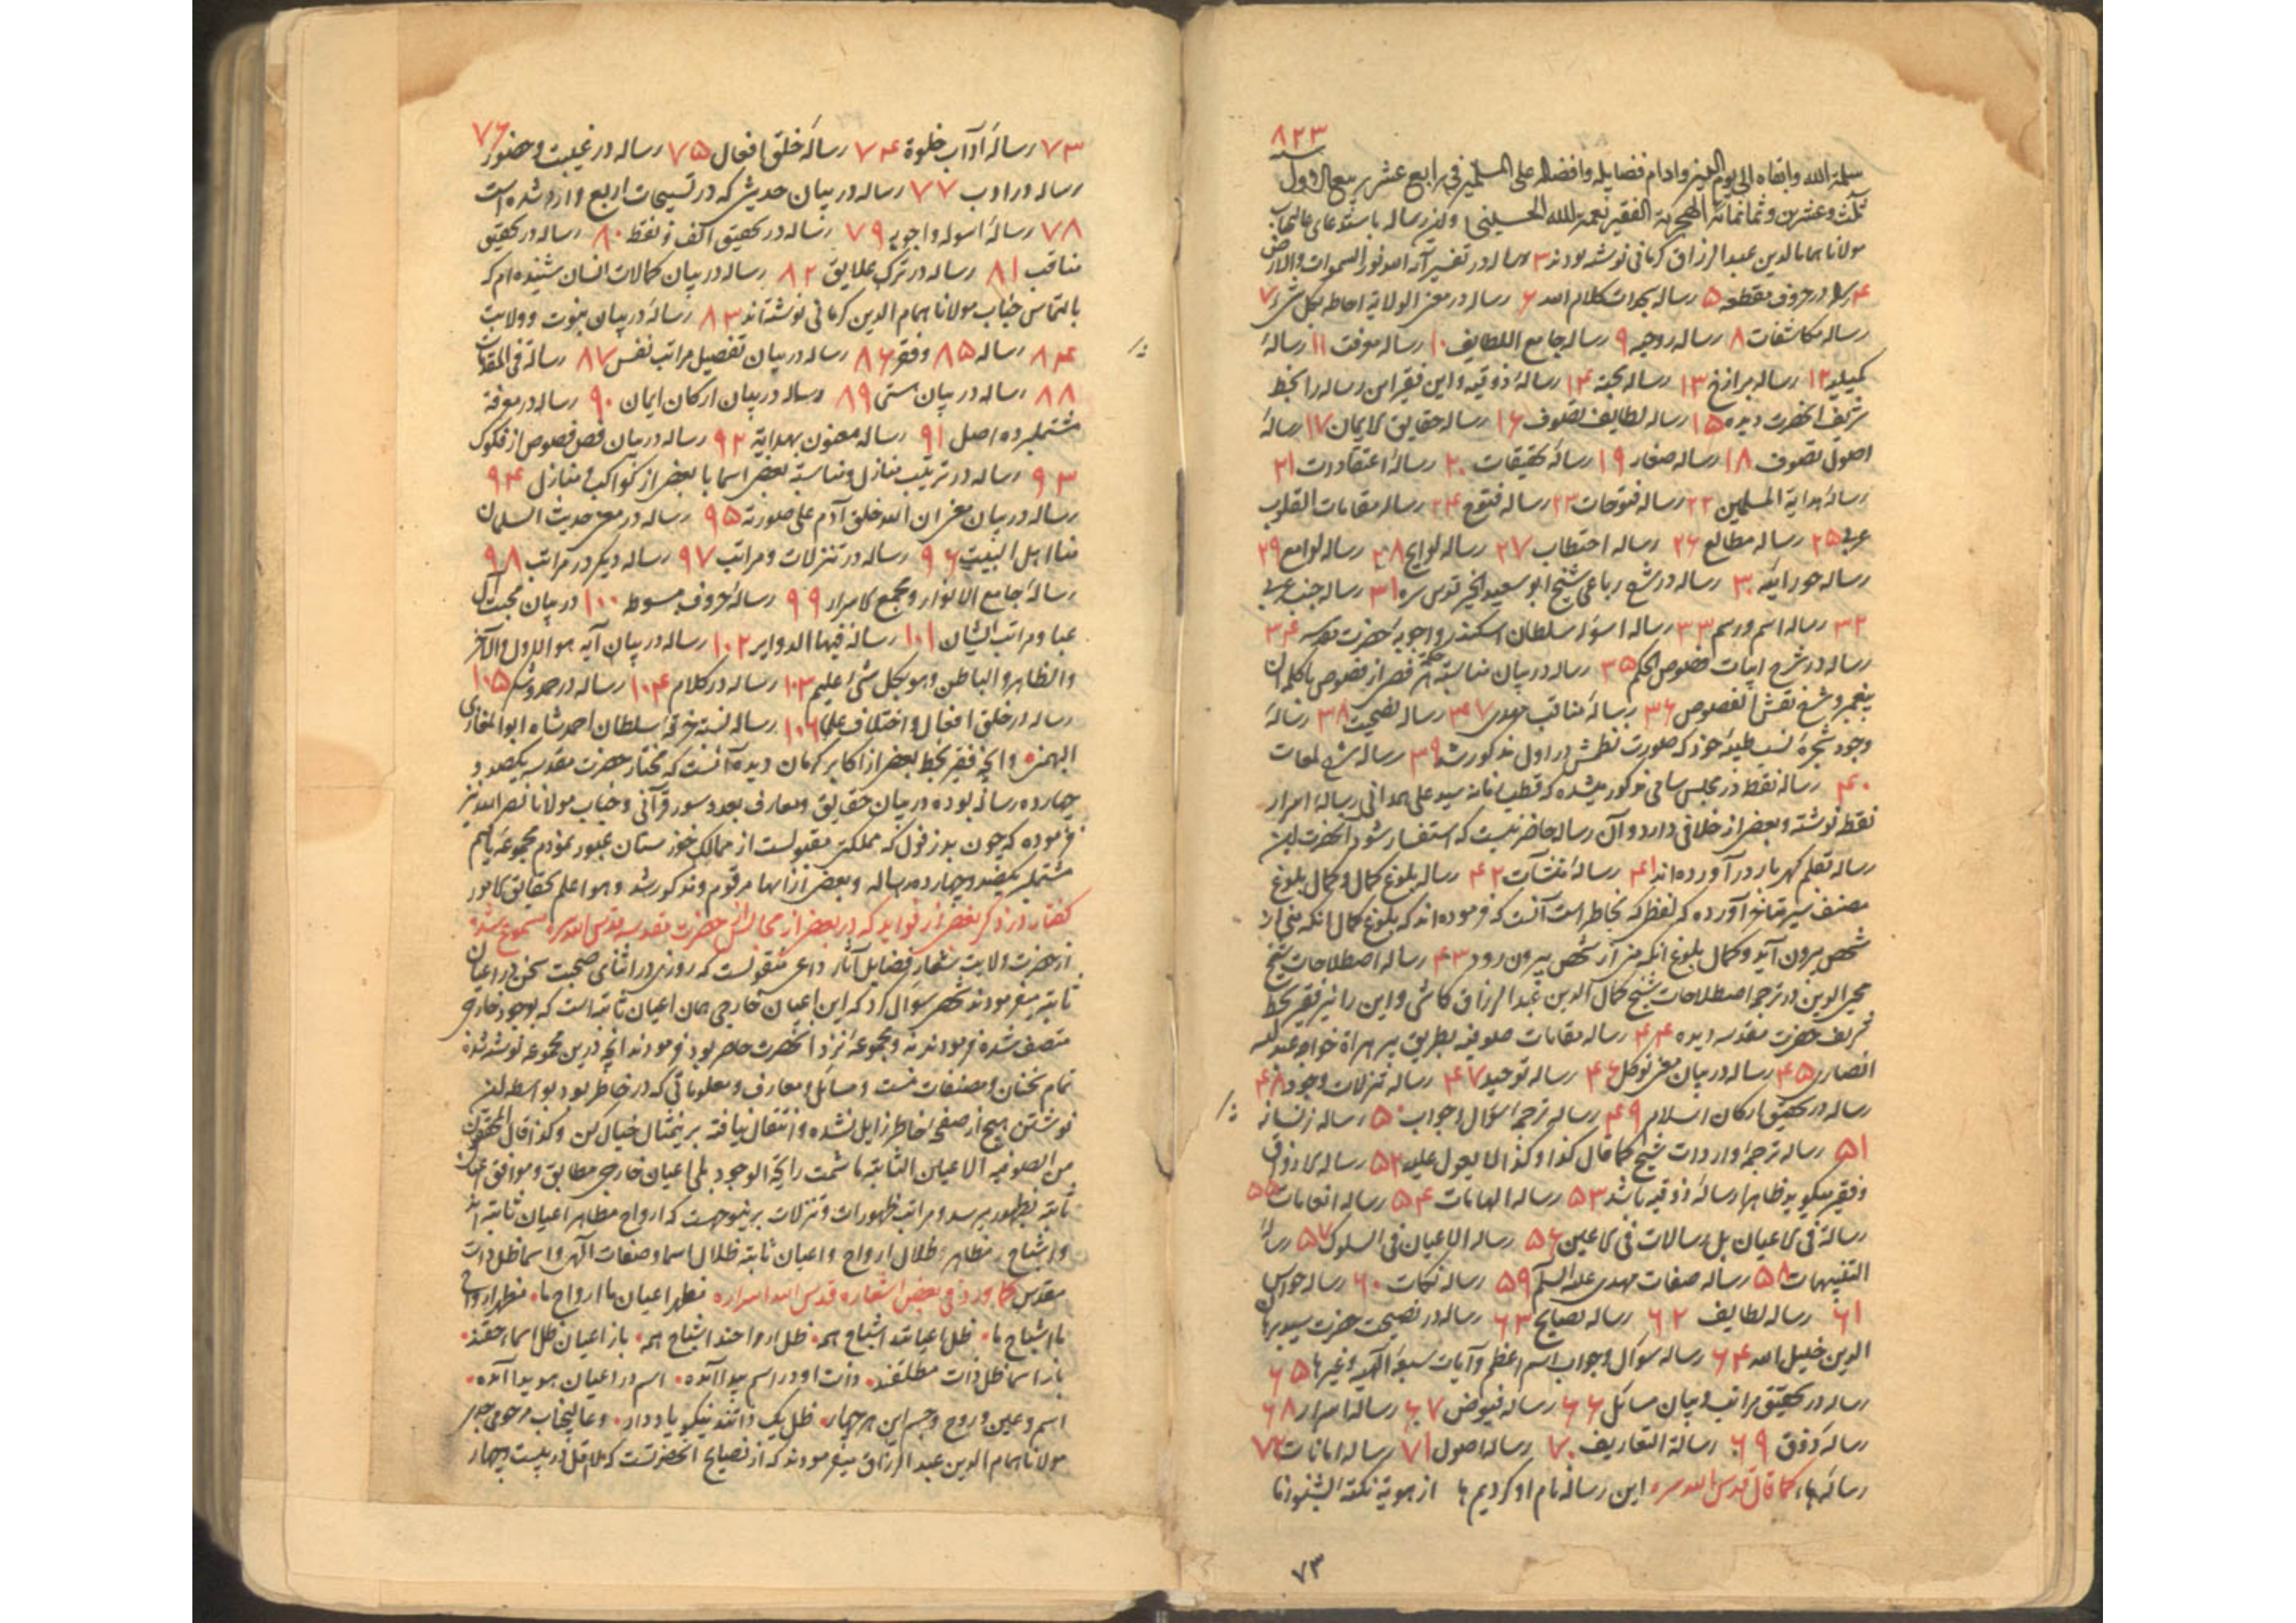 ۸۲۳
سلمه الله وابقاه الی یوم الدین وادام فضایله وافضاله علی المسلمین فی رابع عشر ربیع الاول
ثلث وعشرین وثمانمائة الهجریة الفقیر نعمة الله الحسینی ولین رساله باستدعای عالیجناب
مولانا همام الدین عبد الرزاق کرمانی نوشته بودند ۳ رساله در تفسیر آیه الله نور السموات والارض
۴ رساله در حروف مقطعه ۵ رساله بحرات کلام الله ۶ رساله در معنی الولایة احاطه بکل شیء ۷
رساله مکاشفات ۸ رساله روحیه ۹ رساله جامع اللطایف ۱۰ رساله معرفت ۱۱ رسالهٔ
کمیلیه ۱۲ رساله برازخ ۱۳ رساله محبة ۱۴ رسالهٔ ذوقیه و این فقیر این رساله را بخط
شریف انحضرت دیده ۱۵ رساله لطایف تصوف ۱۶ رساله حقایق الایمان ۱۷ رسالهٔ
اصول تصوف ۱۸ رساله صغار ۱۹ رسالهٔ تحقیقات ۲۰ رسالهٔ اعتقادات ۲۱
رسالهٔ هدایة المسلمین ۲۲ رساله فتوحات ۲۳ رساله فتوح ۲۴ رساله مقامات القلوب
عربی ۲۵ رساله مطالع ۲۶ رساله احتطاب ۲۷ رساله لوایح ۲۸ رساله لوامع ۲۹
رساله حورائیه ۳۰ رساله در شرح رباعی شیخ ابو سعید ابوالخیر قدس سره ۳۱ رساله جنب عربی
۳۲ رساله اسم و رسم ۳۳ رساله اسوله سلطان اسکندر واجوبهٔ حضرت مقدسه ۳۴
رساله در شرح ابیات فصوص الحکم ۳۵ رساله در بیان مناسبة حکمة هر فص از فصوص باکلمه آن
پیغمبر و شرح نقش الفصوص ۳۶ رسالهٔ مناقب مهدی ۳۷ رساله نصیحت ۳۸ رسالهٔ
وجود شجرهٔ نسب طیبه خود که صورت نظمش در اول مذکور شد ۳۹ رساله شرح لمعات
۴۰ رساله نقط در مجلس سامی مذکور میشده که قطب زمانه سید علی همدانی رسالهٔ اسرار
نقطه نوشته و بعضی از خلافی دارد و آن رساله حاضر نیست که استفسار شود انحضرت این
رساله بقلم کهربار درآورده‌اند ۴۱ رسالهٔ منشآت ۴۲ رساله بلوغ کمال و کمال بلوغ
مصنف سیر متانخ آورده که لفظی که بخاطر است آنست که فرموده‌اند که بلوغ کمال انکه منی از
شخص بیرون آید و کمال بلوغ انکه منی از شخص بیرون رود ۴۳ رساله اصطلاحات شیخ
محیی الدین و ترجمه اصطلاحات شیخ کمال الدین عبد الرزاق کاشی و این را نیز فقیر بخط
شریف حضرت مقدسه دیده ۴۴ رساله مقامات صوفیه بطریق پیر هراة خواجه عبدالله
انصاری ۴۵ رساله در بیان معنی توکل ۴۶ رساله توحید ۴۷ رساله تنزلات وجود ۴۸
رساله در تحقیق ارکان اسلام ۴۹ رساله ترجمه سؤال و جواب ۵۰ رساله زنسانه
۵۱ رساله ترجمهٔ واردات شیخ کما قال کذا و کذا لما یعول علیه ۵۲ رساله الاذواق
و فقیر میگوید ظاهرا رسالهٔ ذوقیه باشد ۵۳ رساله الهامات ۵۴ رساله انعامات ۵۵
رسالة فی الاعیان بل رسالات فی الاعین ۵۶ رساله الاعیان فی السلوک ۵۷ رسالهٔ
التنبیهات ۵۸ رساله صفات مهدی علیه السلام ۵۹ رساله نکات ۶۰ رساله حواس
۶۱ رساله لطایف ۶۲ رساله نصایح ۶۳ رساله در نصیحت حضرت سید برهان
الدین خلیل الله ۶۴ رساله سؤال و جواب اسم اعظم و آیات سبعهٔ الهیه و غیرها ۶۵
رساله در تحقیق مراتب و بیان مسائل ۶۶ رساله فیوض ۶۷ رسالهٔ اسرار ۶۸
رسالهٔ ذوق ۶۹ رسالة التعاریف ۷۰ رساله اصول ۷۱ رساله امانات ۷۲
رسالهٔ ها، کما قال قدس الله سره این رساله نام او کردیم ها از هویة نکتهٔ بشنو زما
۷۳
۷۳ رسالهٔ آداب خلوة ۷۴ رسالهٔ خلق افعال ۷۵ رساله در غیبت و حضور ۷۶
رساله در ادب ۷۷ رساله در بیان حدیثی که در تسبیحات اربع وارد شده است
۷۸ رسالهٔ اسوله و اجوبه ۷۹ رساله در تحقیق الف و نقط ۸۰ رساله در تحقیق
مناقب ۸۱ رساله در ترک علایق ۸۲ رساله در بیان کمالات انسان شنیده‌ام که
بالتماس جناب مولانا همام الدین کرمانی نوشته‌اند ۸۳ رساله در بیان نبوت و ولایت
۸۴ رساله ۸۵ و فقر ۸۶ رساله در بیان تفصیل مراتب نفس ۸۷ رسالة فی المقامات
۸۸ رساله در بیان هستی ۸۹ رساله در بیان ارکان ایمان ۹۰ رساله در معرفة
مشتمل بر ده اصل ۹۱ رساله معنون بهدایة ۹۲ رساله در بیان فص فصوص از فکوک
۹۳ رساله در ترتیب منازل و مناسبة بعضی اسما با بعضی از کواکب و منازل ۹۴
رساله در بیان معنی ان الله خلق آدم علی صورته ۹۵ رساله در معنی حدیث السلمان
منا اهل البیت ۹۶ رساله در تنزلات و مراتب ۹۷ رساله دیگر در مراتب ۹۸
رسالهٔ جامع الانوار و مجمع الاسرار ۹۹ رسالهٔ حروف مبسوط ۱۰۰ در بیان محبت آل
عبا و مراتب ایشان ۱۰۱ رسالهٔ فیها الدوایر ۱۰۲ رساله در بیان آیه هو الاول والآخر
والظاهر والباطن وهو بکل شیء علیم ۱۰۳ رساله در کلام ۱۰۴ رساله در حمد و شکر ۱۰۵
رساله در خلق افعال و اختلاف علما ۱۰۶ رساله لبسته خرقهٔ سلطان احمد شاه ابو المغازی
البهمنی و آنچه فقیر بخط بعضی از اکابر کرمان دیده آنست که مختار حضرت مقدسه یکصد و
چهارده رساله بوده در بیان حقایق و معارف بعدد سور قرآنی و جناب مولانا نصر الله نیز
فرموده که چون بدزفول که مملکتی مقبولست از ممالک خوزستان عبور نمودم مجموعهٔ یافتم
مشتمل بر یکصد و چهارده رساله و بعضی از اسامها مرقوم و مذکور شد و هو اعلم بحقایق الامور
گفتار در ذکر بعضی از فواید که در بعضی از مجالس حضرت مقدسه قدس الله سره مسموع شده
از حضرت ولایت شعار فضایل آثار داعی منقولست که روزی در اثنای صحبت سخن در اعیان
ثابته میفرمودند شخصی سوال کرد که این اعیان خارجی همان اعیان ثابته است که بوجود خارجی
متصف شده فرمودند نه و مجموعهٔ نزد انحضرت حاضر بود فرمودند انچه درین مجموعه نوشته شده
تمام سخنان و مصنفات منست و مسائل و معارف و معلوماتی که در خاطر بود بواسطه این
نوشتن هیچ از صفحهٔ خاطر زایل نشده و انتقال نیافته برینمثال خیال کن و کذا قال المحققون
من الصوفیه الاعیان الثابته ما شمت رایحة الوجود بلی اعیان خارجی مطابق و موافق اعیان
ثابته بظهور میرسد و مراتب ظهورات و تنزلات برینوجهست که ارواح مظاهر اعیان ثابته اند
و اشباح مظاهر و ظلال ارواح و اعیان ثابته ظلال اسما و صفات الهی و اسما ظل ذات
مقدس کما ورد فی بعض اشعاره قدس الله اسراره مظهر اعیان ما ارواح ما مظهر ارواح
ما اشباح ما ظل اعیانند اشباح همه ظل ارواحند اشباح همه باز اعیان ظل اسماء حقند
باز اسما ظل ذات مطلقند ذات او در اسم پیدا آمده اسم در اعیان هویدا آمده
اسم و عین و روح و جسم این هر چهار ظل یک ذاتند نیکو یاد دار و عالیجناب مرحومی
مولانا همام الدین عبد الرزاق میفرمودند که از نصایح انحضرتست که لااقل در بیست و چهار